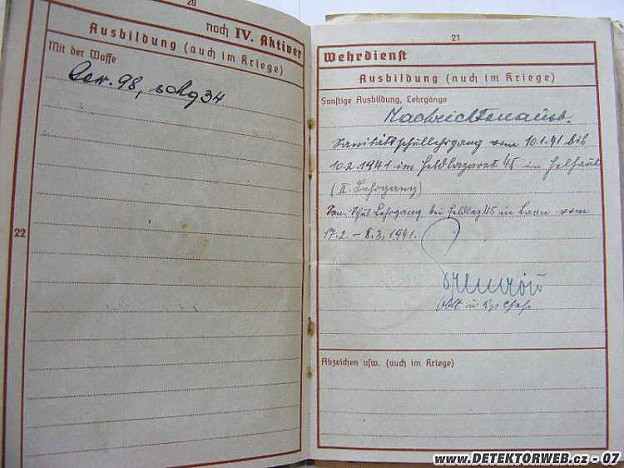 20
noch IV. Aktiver
Ausbildung (auch im Kriege)
Mit der Waffe
Gew. 98, s MG 34
22
21
Wehrdienst
Ausbildung (auch im Kriege)
Sonstige Ausbildung, Lehrgänge
Nachrichtenausb.
Sanitätsschullehrgang vom 10.1.41 bis
10.2.1941 im Feldlazarett 45 in
(II. Lehrgang)
San. Schul Lehrgang bei Feldlaz 45 in Laon vom
17.2. – 8.3.1941.
Abzeichen usw. (auch im Kriege)
www.DETEKTORWEB.cz - 07